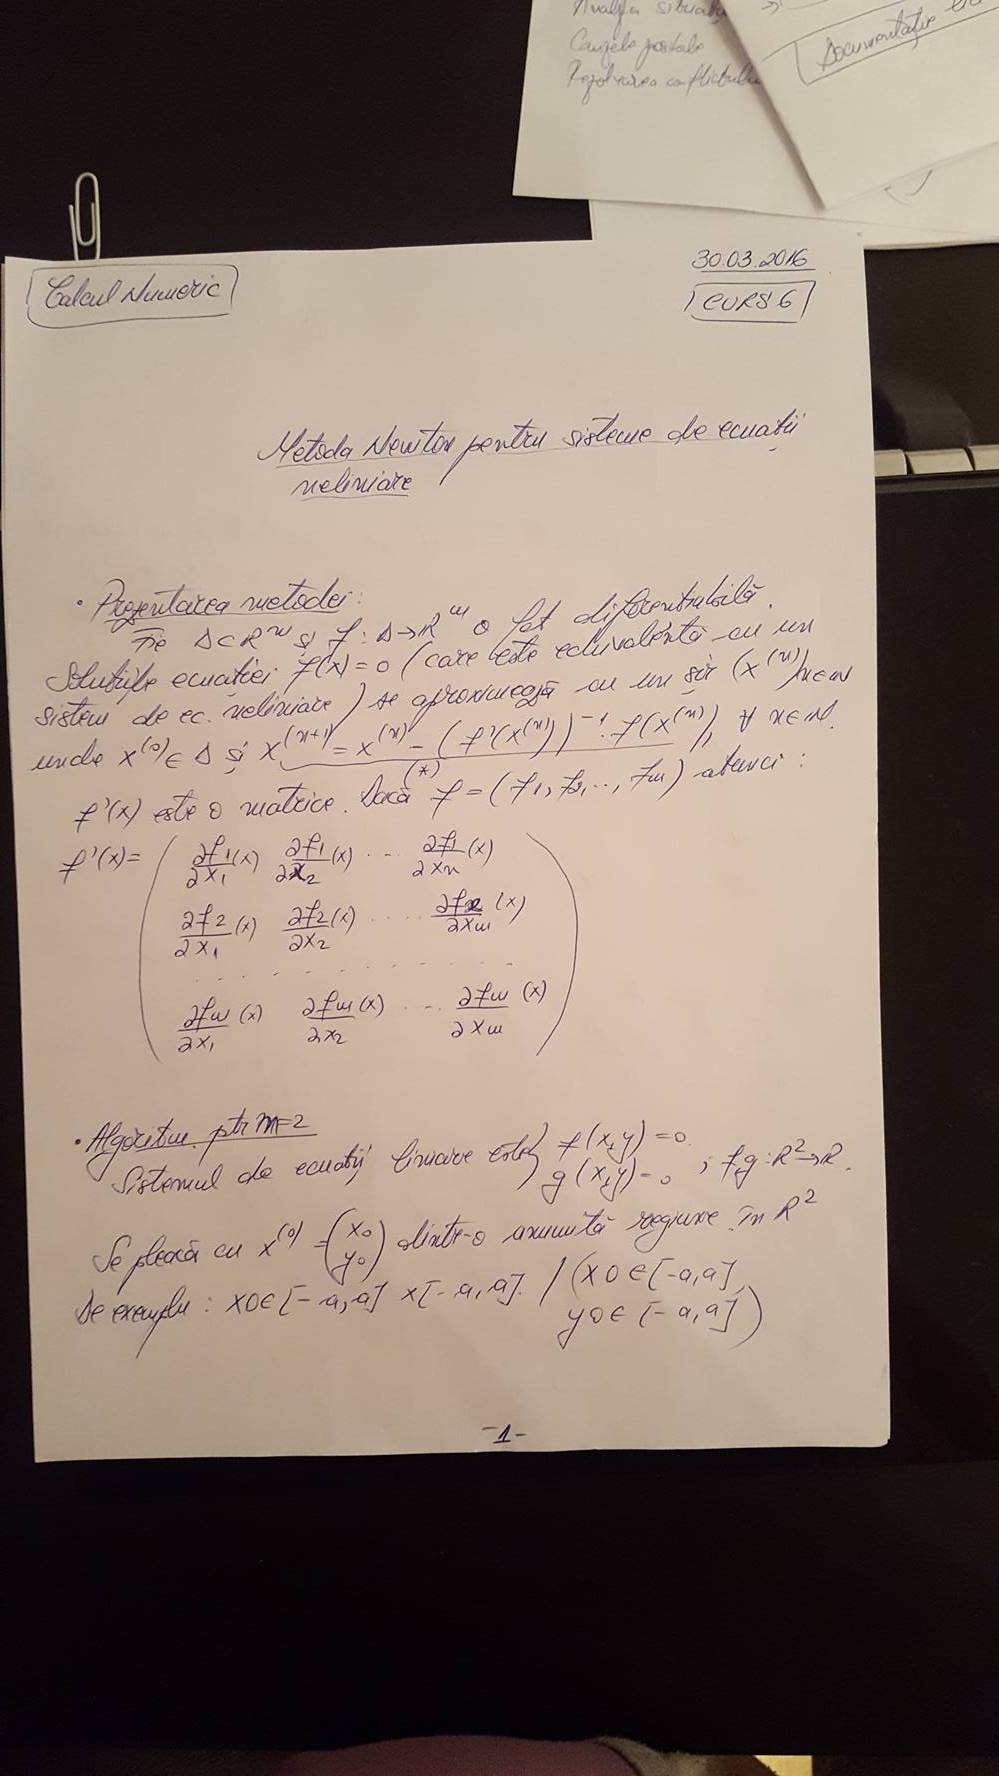 Analiza situației
Cauzele posibile
Rezolvarea conflictului
Documentație
Calcul Numeric
30.03.2016
CURS 6
Metoda Newton pentru sisteme de ecuații
neliniare
• Prezentarea metodei:
Fie Δ⊂R^m și f: Δ→R^m o fct diferențiabilă.
Soluțiile ecuației f(x)=0 (care este echivalentă cu un
sistem de ec. neliniare) se aproximează cu un șir (x^(n))n∈N
unde x^(0)∈Δ și x^(n+1) = x^(n) - (f'(x^(n)))^-1 · f(x^(n)), ∀ n∈N.
(*)
f'(x) este o matrice. Dacă f = (f1, f2, ..., fm) atunci:
f'(x) = ( ∂f1/∂x1 (x) ∂f1/∂x2 (x) ... ∂f1/∂xn (x)
∂f2/∂x1 (x) ∂f2/∂x2 (x) .... ∂f2/∂xm (x)
. . . . . . . . . .
∂fm/∂x1 (x) ∂fm/∂x2 (x) ... ∂fm/∂xm (x) )
• Algoritm ptr m=2
Sistemul de ecuații liniare este { f(x,y)=0
g(x,y)=0 ; f,g: R^2→R.
Se pleacă cu x^(0) = (x0 y0) dintr-o anumită regiune în R^2
De exemplu: x0∈[-a,a] x[-a,a]. / (x0∈[-a,a],
y0∈[-a,a])
-1-